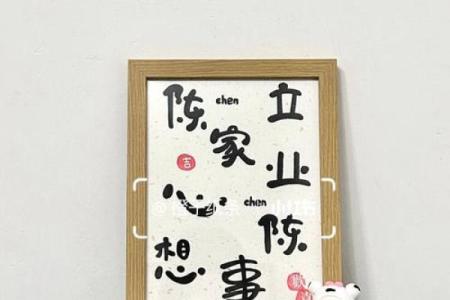 陈 chen 立
家 业
吉
心 chen 陈
想 事